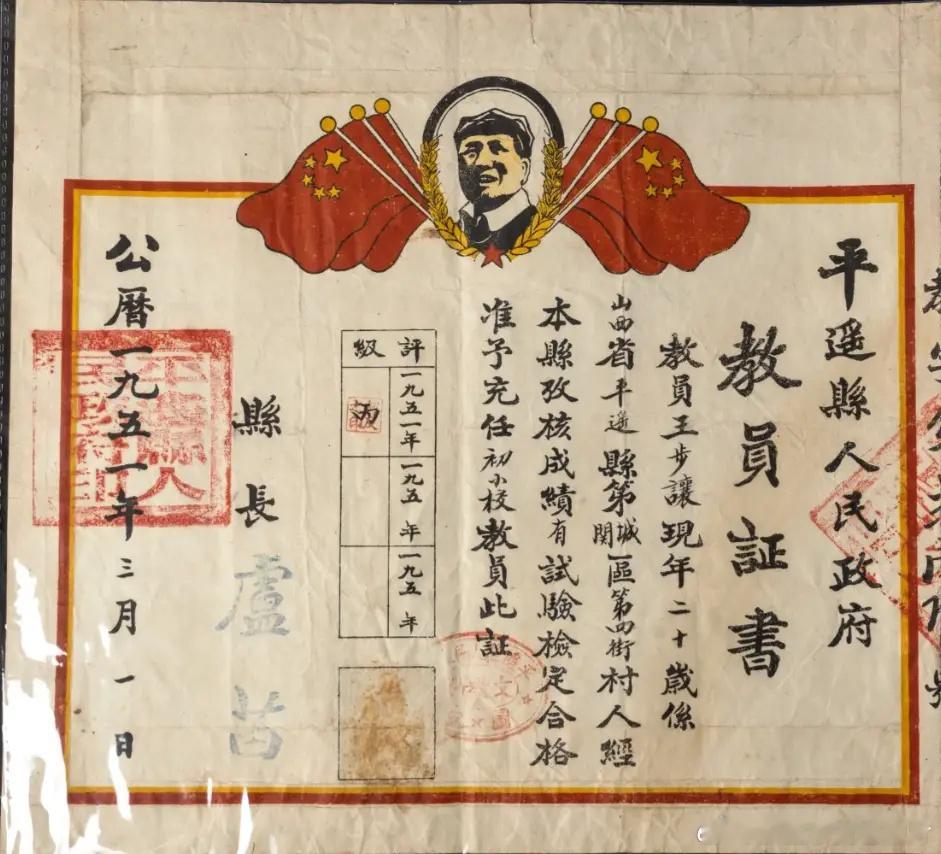 平遥縣人民政府
教員証書
教員王步讓現年二十歲係
山西省平遥縣第城關區第四街村人經
本縣攷核成績有試驗檢定合格
准予充任初小校教員此証
評級
一九五一年
丙
一九五 年
一九五 年
縣長
盧苗
公曆一九五一年三月一日